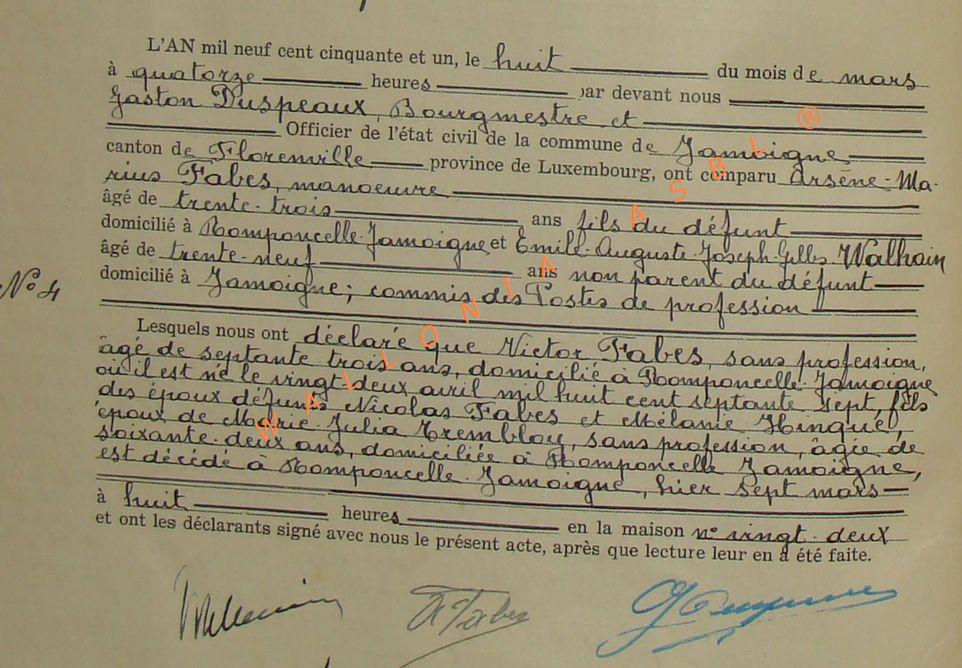 L'AN mil neuf cent cinquante et un, le huit du mois de mars
à quatorze heures par devant nous
Gaston Duspeaux, Bourgmestre et
Officier de l'état civil de la commune de Jamoigne,
canton de Florenville province de Luxembourg, ont comparu Arsène-Ma-
rius Fabes, manoeuvre
âgé de trente-trois ans fils du défunt
domicilié à Romponcelle-Jamoigne et Emile-Auguste-Joseph-Gilles Walhain
âgé de trente-neuf ans non parent du défunt
domicilié à Jamoigne; commis des Postes de profession
N° 4
Lesquels nous ont déclaré que Victor Fabes, sans profession,
âgé de septante trois ans, domicilié à Romponcelle-Jamoigne
où il est né le vingt deux avril mil huit cent septante sept, fils
des époux défunts Nicolas Fabes et Mélanie Hinque,
époux de Marie-Julia Trembloy, sans profession, âgée de
soixante-deux ans, domiciliée à Romponcelle Jamoigne,
est décédé à Romponcelle-Jamoigne, hier sept mars
à huit heures en la maison n° vingt-deux
et ont les déclarants signé avec nous le présent acte, après que lecture leur en a été faite.
Walhain A Fabes
WALLONIA ASBL ®